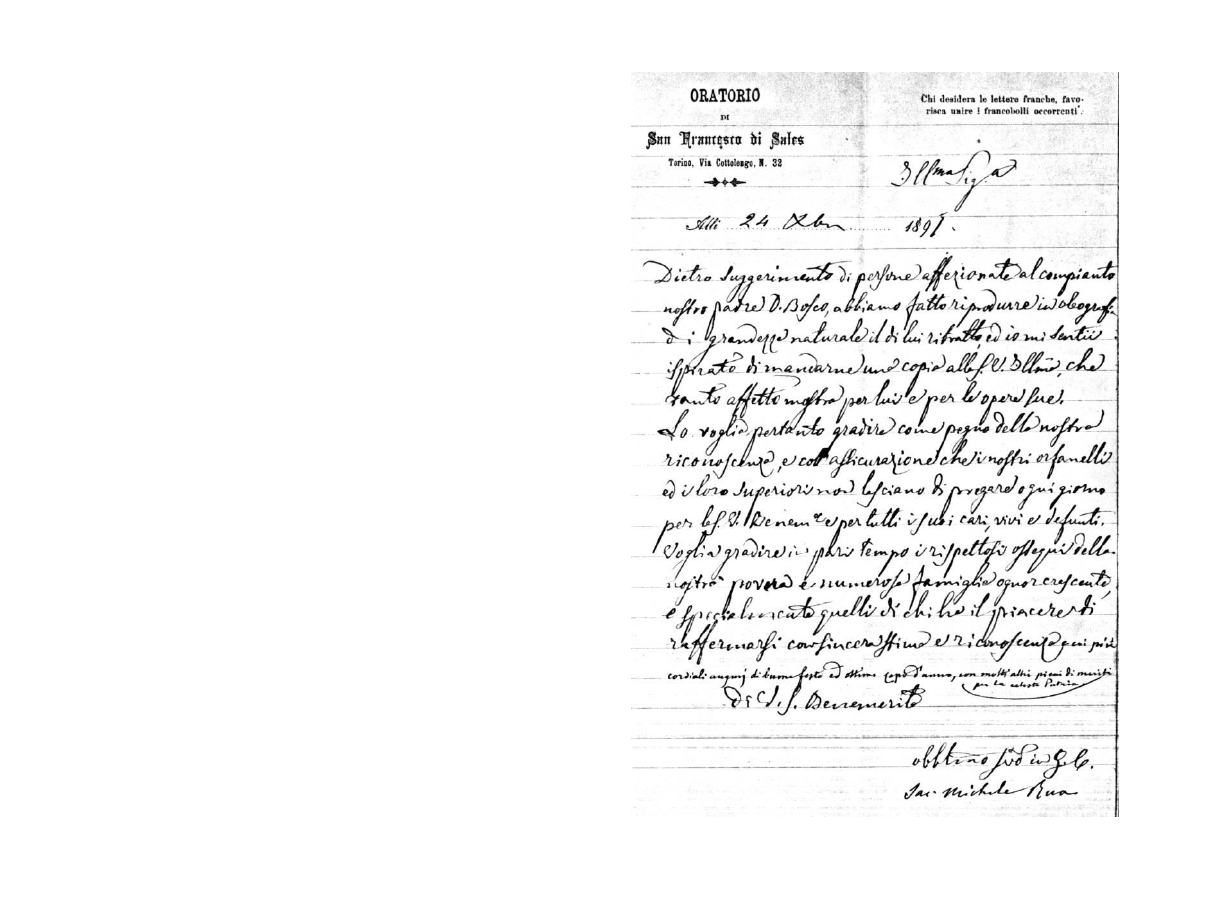 ORATORIO
DI
San Francesco di Sales
Torino, Via Cottolengo, N. 32
Chi desidera le lettere franche, favo-
risca unire i francobolli occorrenti.
Ill.ma Sig.a
Alli 24 Xbre 1891.
Dietro suggerimento di persone affezionate al compianto
nostro padre D. Bosco, abbiamo fatto riprodurre in oleografia
di grandezza naturale il di lui ritratto, ed io mi sentii
ispirato di mandarne una copia alla S. V. Ill.ma, che
tanto affetto mostra per lui e per le opere sue.
Lo voglia pertanto gradire come pegno della nostra
riconoscenza, e coll'assicurazione che i nostri orfanelli
ed i loro superiori non lasciano di pregare ogni giorno
per la S. V. Benem.a e per tutti i suoi cari, vivi e defunti.
Voglia gradire in pari tempo i rispettosi ossequi della
nostra povera e numerosa famiglia ognor crescente,
e specialmente quelli di chi ha il piacere di
raffermarsi con sincera stima e riconoscenza qui più
cordiali auguri di buone feste ed ottimo capo d'anno, con molti altri pieni di meriti
per la celeste Patria
di V. S. Benemerita
obbl.mo in G. C.
Sac. Michele Rua